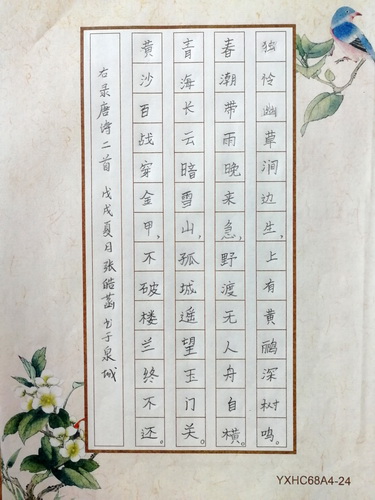 独怜幽草涧边生，上有黄鹂深树鸣。
春潮带雨晚来急，野渡无人舟自横。
青海长云暗雪山，孤城遥望玉门关。
黄沙百战穿金甲，不破楼兰终不还。
右录唐诗二首 戊戌夏日张皓菡书于泉城
YXHC68A4-24